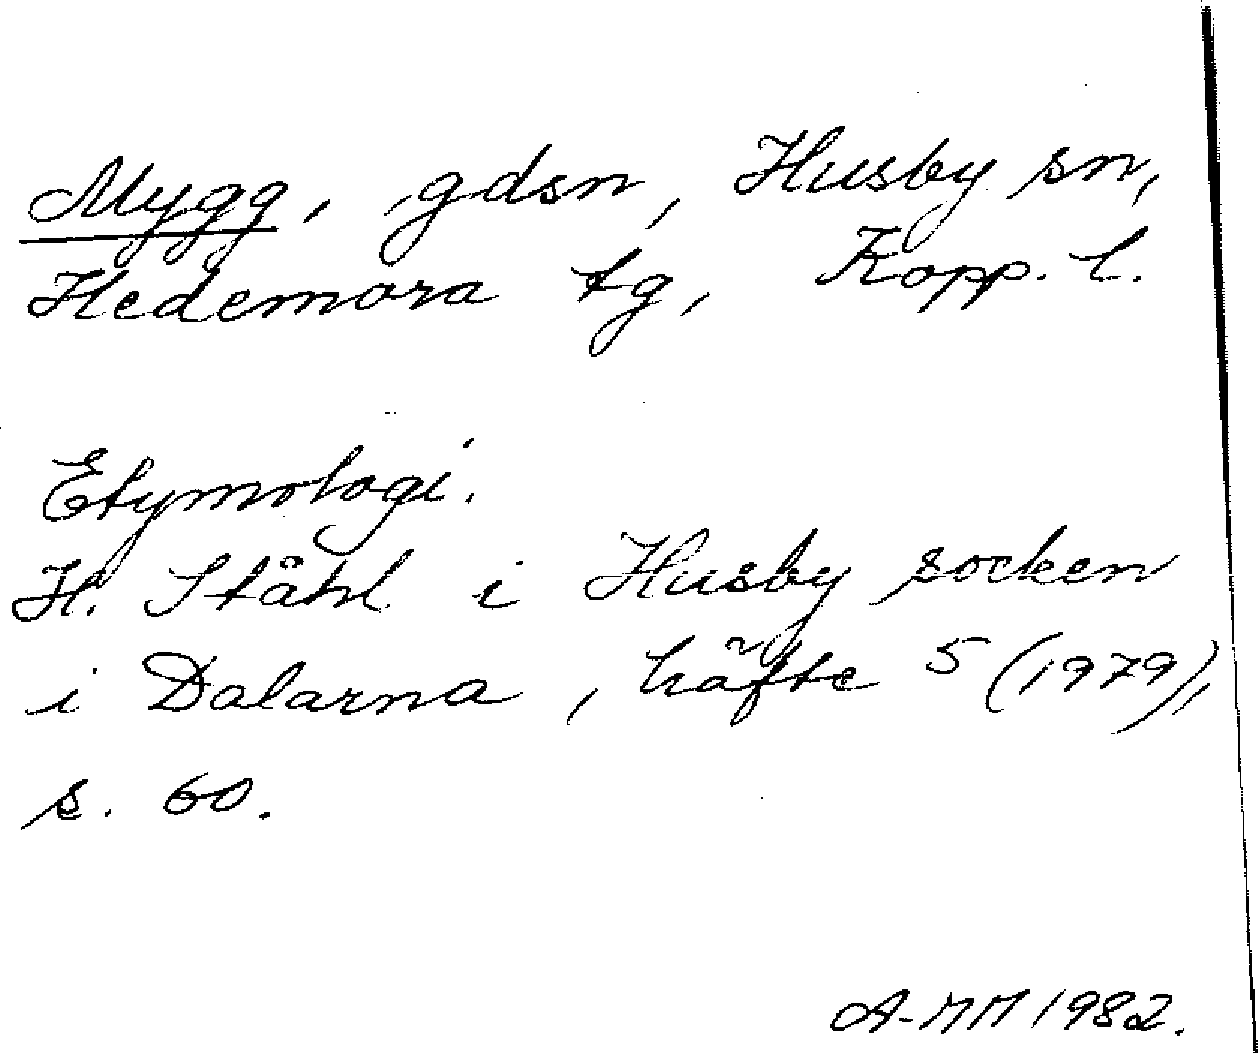 Mygg, gdsn, Husby sn,
Hedemora tg, Kopp. l.
Etymologi.
H. Ståhl i Husby socken
i Dalarna, häfte 5 (1979),
s. 60.
A-MM 1982.